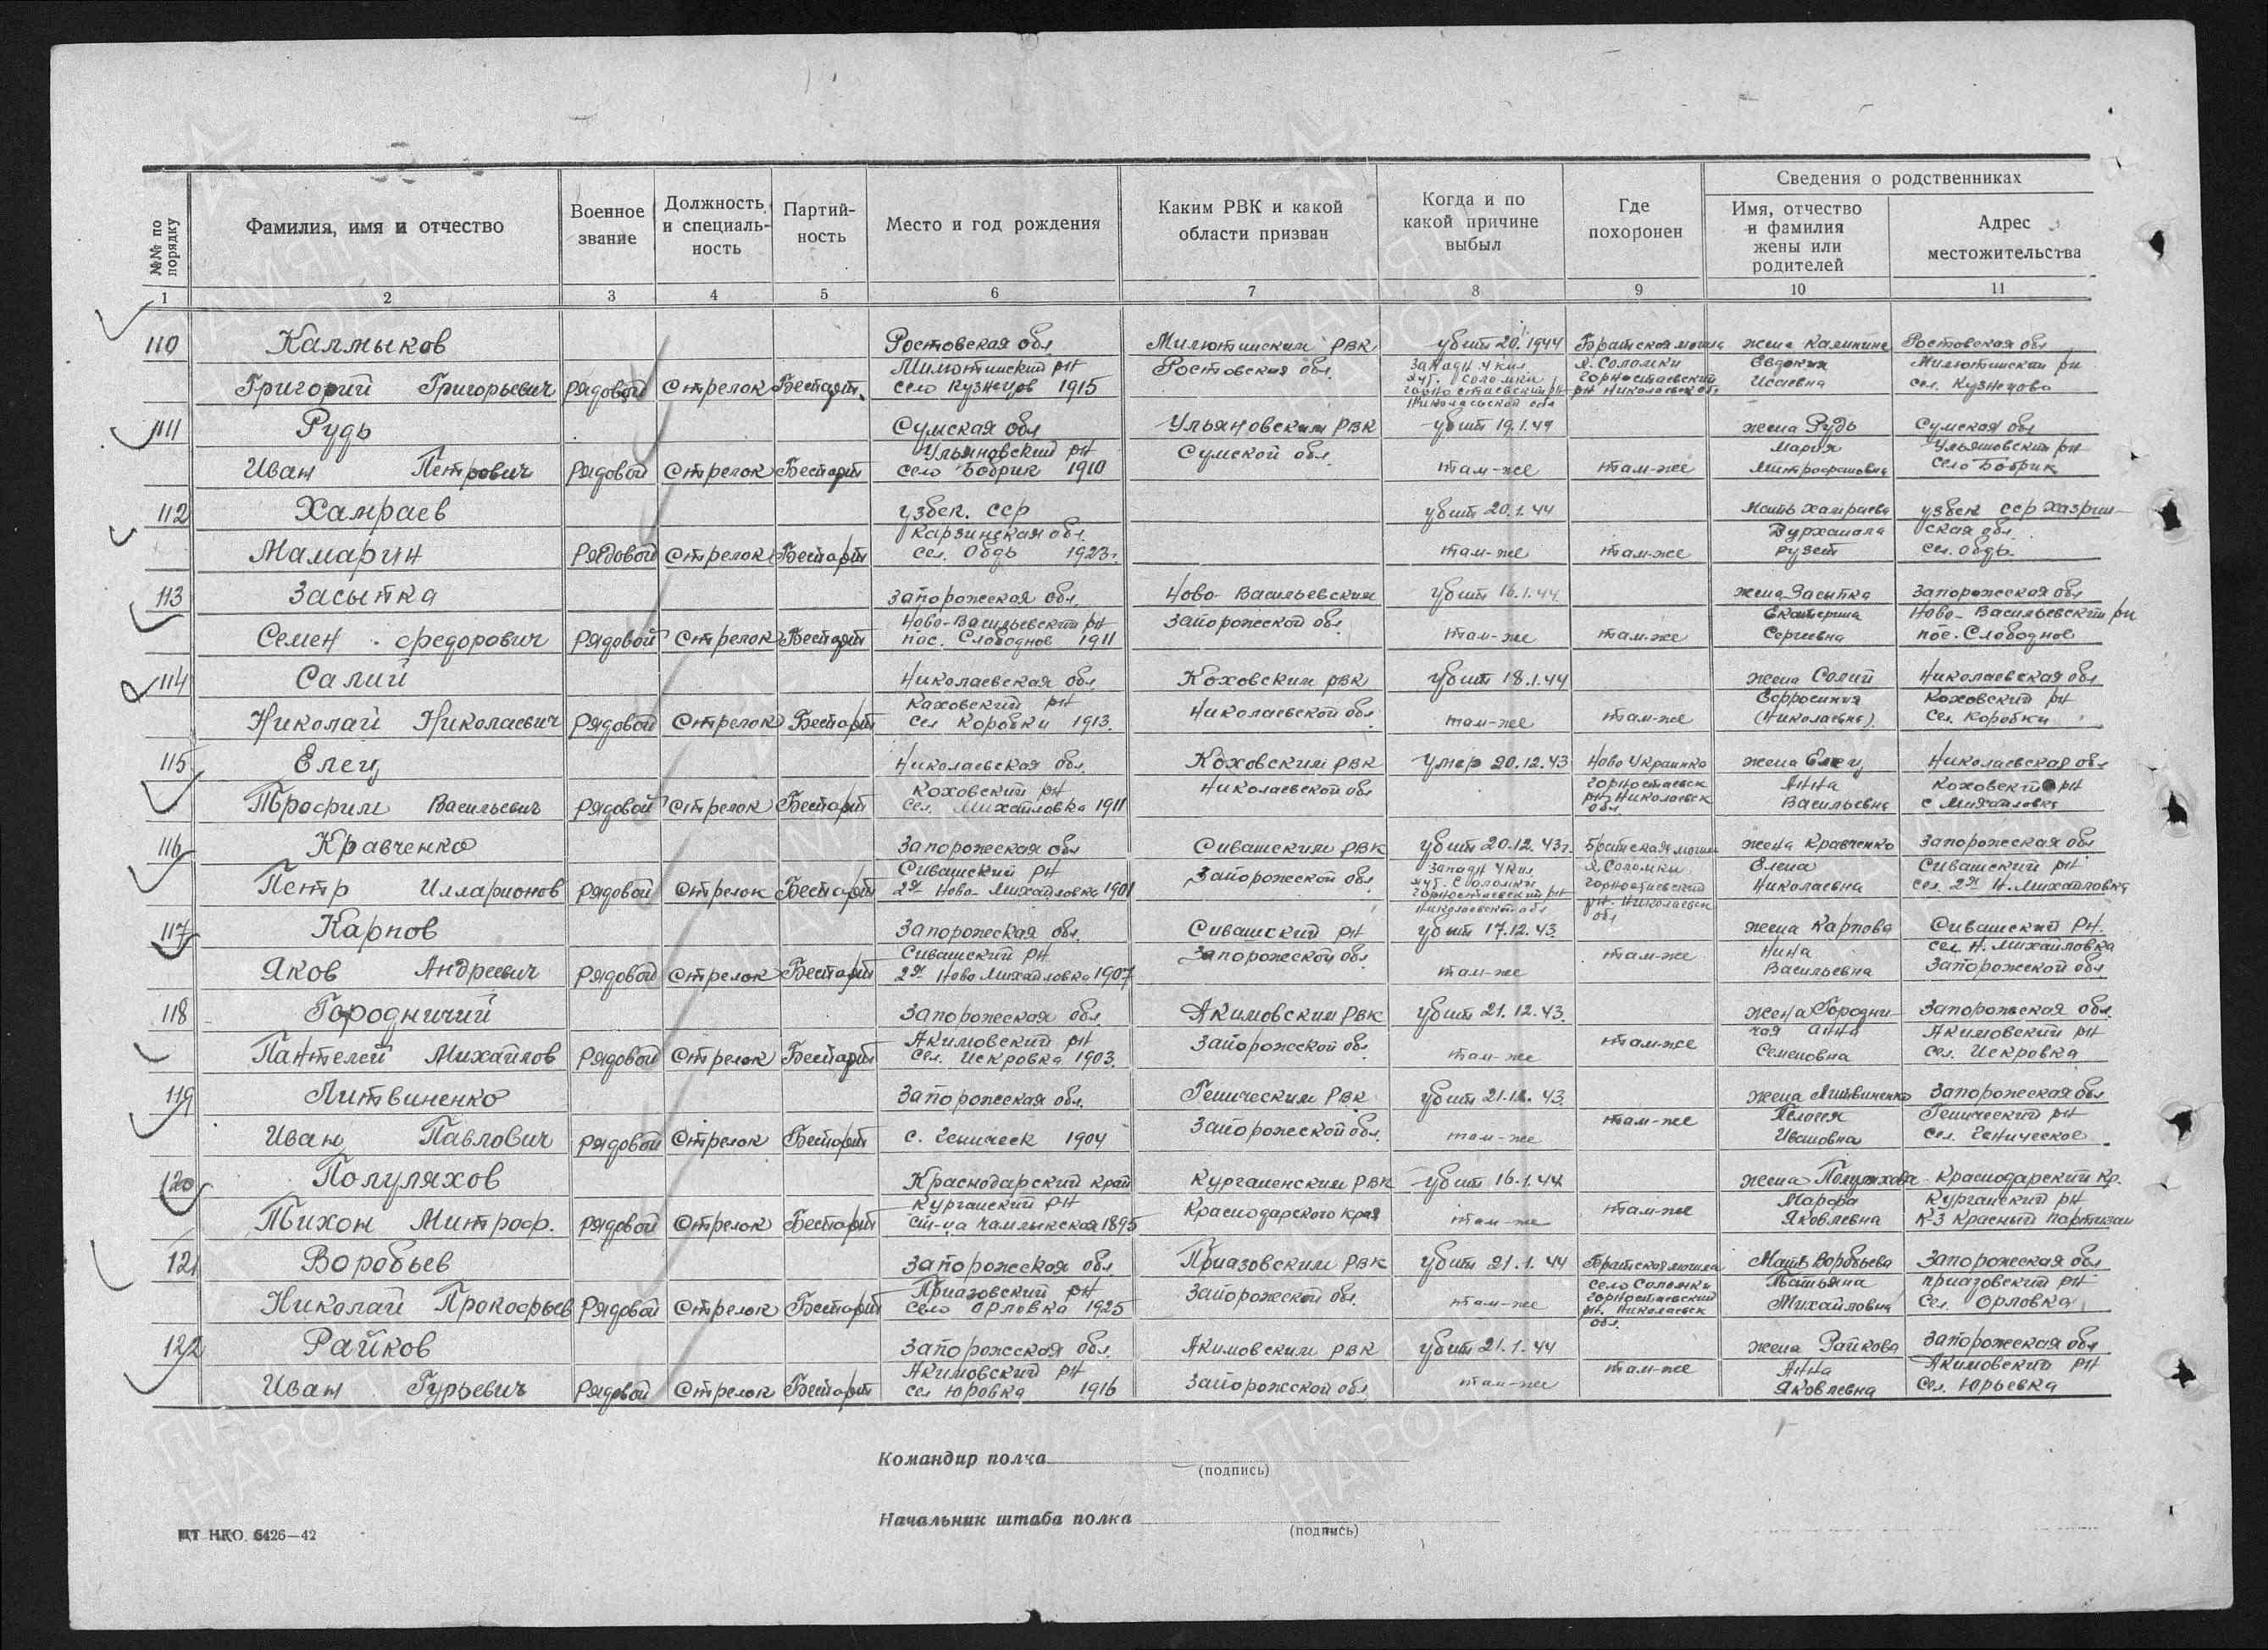 №№ по порядку
Фамилия, имя и отчество
Военное звание
Должность и специаль-ность
Партий-ность
Место и год рождения
Каким РВК и какой области призван
Когда и по какой причине выбыл
Где похоронен
Сведения о родственниках
Имя, отчество и фамилия жены или родителей
Адрес местожительства
1 2 3 4 5 6 7 8 9 10 11
110 Калмыков Ростовская обл Милютинским РВК убит 20.1.1944 Братская могила жена Ростовская обл
Милютинский рн Ростовская обл. Западн 4 кил Х. Соломки Евдокия Милютинский рн
Григорий Григорьевич Рядовой Стрелок Беспарт. село Кузнецов 1915 хут. Соломки Горностаевский Исаевна сел. Кузнецова
Горностаевский рн рн Николаевск обл
Николаевской обл
111 Рудь Сумская обл Ульяновским РВК убит 19.1.44 жена Рудь Сумская обл
Ульяновский рн Сумской обл. Мария Ульяновский рн
Иван Петрович Рядовой Стрелок Беспарт село Бобрик 1910 там-же там-же Митрофановна село Бобрик
112 Хамраев узбек. сср убит 20.1.44 Мать Хамраева узбек сср
обл. ская обл.
Мамарин Рядовой Стрелок Беспарт сел. Обдь 1923г. там-же там-же сел. Обдь.
113 Засыпка Запорожская обл. Ново-Васильевским убит 16.1.44. жена Засыпка Запорожская обл
Ново-Васильевский рн Запорожской обл. Екатерина Ново-Васильевский рн
Семен Федорович Рядовой Стрелок Беспарт пос. Слободное 1911 там-же там-же Сергеевна пос. Слободное
114 Салий Николаевская обл. Коховским РВК убит 18.1.44 жена Салий Николаевская обл
Каховский рн Николаевской обл. Ефросиния Коховский рн
Николай Николаевич Рядовой Стрелок Беспарт сел Коробки 1913. там-же там-же (Николаевна). сел. Коробки
115 Елец Николаевская обл. Коховским РВК Умер 20.12.43 Ново Украинка жена Елец Николаевская обл
Коховский рн Николаевской обл Горностаевск Анна Коховский рн
Трофим Васильевич Рядовой Стрелок Беспарт сел. Михайловка 1911 рн Николаевск обл. Васильевна с Михайловка
116 Кравченко Запорожская обл Сивашским РВК убит 20.12.43г. Братская могила жена Кравченко Запорожская обл
Сивашский рн Запорожской обл западн 4 кил. Х Соломки Елена Сивашский рн
Петр Илларионов Рядовой Стрелок Беспарт 2я Ново-Михайловка 1901 хут. Соломки Горностаевский Николаевна сел. 2я Н.Михайловка
Горностаевский рн рн. Николаевск
Николаевской обл обл
117 Карпов Запорожская обл. Сивашский рн убит 17.12.43. жена Карпова Сивашский рн.
Сивашский рн Запорожской обл там-же Нина сел Н.Михайловка
Яков Андреевич Рядовой Стрелок Беспарт 2я Ново Михайловка 1907 там-же Васильевна Запорожской обл
118 Городничий Запорожская обл. Акимовским РВК убит 21.12.43. жена Городни Запорожская обл.
Акимовский рн Запорожской обл. там-же чая Анна Акимовский рн
Пантелей Михайлов Рядовой Стрелок Беспарт сел. Искровка 1903. там-же Семеновна сел. Искровка
119 Литвиненко Запорожская обл. Геническим РВК убит 21.12.43. жена Литвиненко Запорожская обл
Запорожской обл. там-же Пелогея Генический рн
Иван Павлович Рядовой Стрелок Беспарт с. Геническ 1904 там-же Ивановна сел. Геническое
120 Полуляхов Краснодарский край Курганенским РВК убит 16.1.44 жена Полуляхова Краснодарский кр.
Курганский рн Краснодарского края там-же Марфа Курганский рн
Тихон Митроф. Рядовой Стрелок Беспарт ст-ца Чамлыкская 1895 там-же Яковлевна К-З Красный Партизан
121 Воробьев Запорожская обл. Приазовским РВК убит 21.1.44 Братская могила Мать Воробьева Запорожская обл
Приазовский рн Запорожской обл. село Соломки Татьяна Приазовский рн
Николай Прокофьев Рядовой Стрелок Беспарт село Орловка 1925 там-же Горностаевский Михайловна сел. Орловка
рн. Николаевск
обл.
122 Райков Запорожская обл. Акимовским РВК убит 21.1.44 жена Райкова Запорожская обл
Акимовский рн Запорожской обл там-же Анна Акимовский рн
Иван Гурьевич Рядовой Стрелок Беспарт сел Юровка 1916 там-же Яковлевна сел. Юрьевка
Командир полка
(подпись)
Начальник штаба полка
(подпись)
ЦТ НКО. 6426—42
ПАМЯТЬ НАРОДА